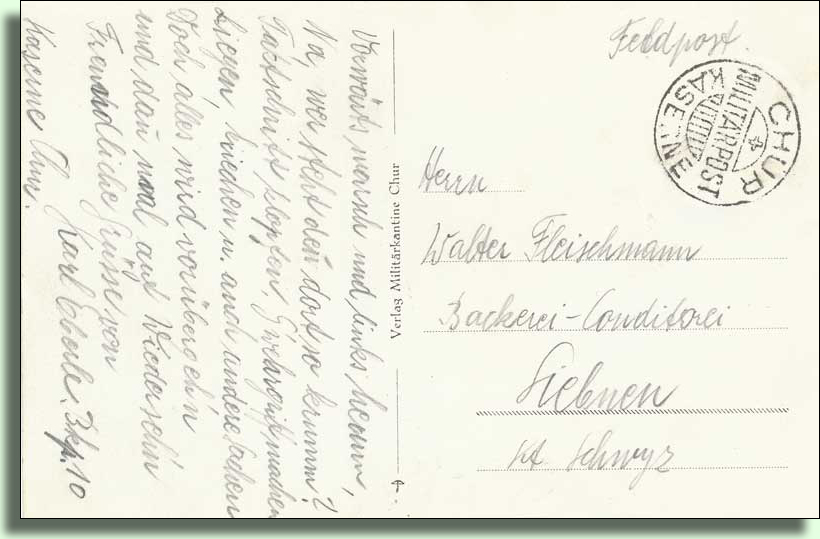 Vorwärts marsch und links herum,
Na, wer steht den dort so krumm?
Taktschritt klopfen, G'wehrgriff machen
Liegen, kriechen u. auch andere Sachen
Doch alles wird vorübergeh'n
und dan̄ mal auf Wiederseh'n
Freundliche Grüsse von
Karl Eberle. Bkp. 10
Kaserne Chur.
Verlag Militärkantine Chur
Feldpost.
CHUR
MILITÄRPOST
KASERNE
Herrn
Walter Fleischmann
Backerei-Conditorei
Siebnen
Kt. Schwyz